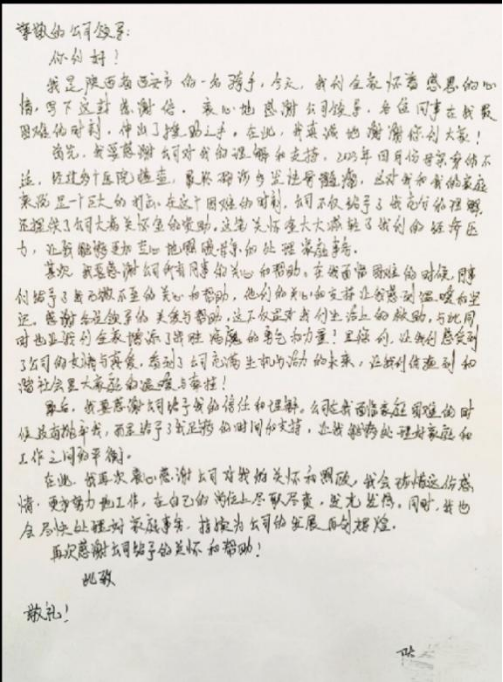 尊敬的公司领导：
你们好！
我是陕西省西安市的一名骑手，今天，我们全家怀着感恩的心
情，写下这封感谢信。衷心地感谢公司领导、各位同事在我最
困难的时刻，伸出了援助之手。在此，我真诚地谢谢你们大家！
首先，我要感谢公司对我的理解和支持，2023年四月份母亲身体不
适，经过多个医院检查，最终确诊为 骨髓瘤，这对我和我的家庭
来说是一个巨大的打击。在这个困难的时刻，公司不仅给予了我充分的理解，
还提供了公司大病关怀金的资助，这笔关怀金大大减轻了我们的经济压
力，让我能够更加安心地照顾母亲的处理家庭事务。
其次，我要感谢公司所有同事的关心和帮助。在我面临困难的时候，同事
们给予了我无微不至的关心和帮助，他们的关心和支持让我感到温暖和坚
定。感谢各级领导的关爱与帮助，这不仅是对我们生活上的救助，与此同
时也给我们全家增添了战胜病魔的勇气和力量！ 让我们感受到
了公司的友情与真爱，看到了公司充满生机与活力的未来，让我们体会到和
谐社会里大家庭的温暖与幸福！
最后，我要感谢公司给予我的信任和理解。公司在我面临家庭困难的时
候没有抛弃我，而是给予了我足够的时间和支持，让我能够处理好家庭和
工作之间的平衡。
在此，我再次衷心感谢公司对我的关怀和照顾，我会珍惜这份感
情，更加努力地工作，在自己的岗位上尽职尽责，发光发热。同时，我也
会尽快处理好家庭事务，继续为公司的发展再创辉煌。
再次感谢公司给予的关怀和帮助！
此致
敬礼！